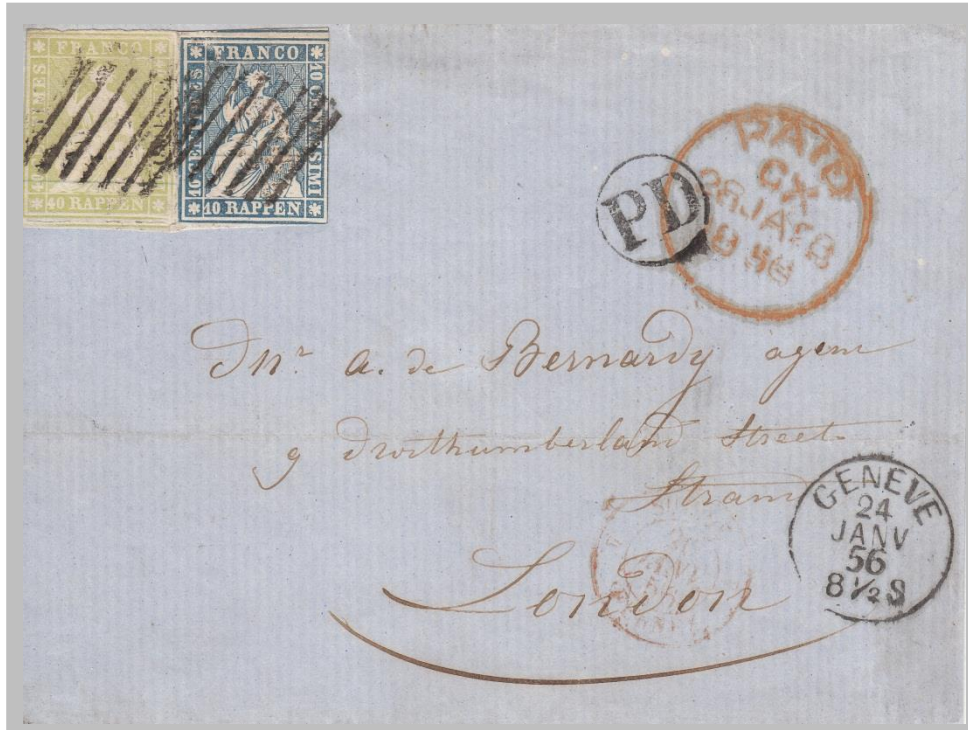 FRANCO
40 RAPPEN
FRANCO
10 CENTIMES
10 CENTESIMI
10 RAPPEN
PD
PAID
CX
28 JA 28
1856
Mr. a. de Bernardy agent
9 Northumberland Street
Strand
London
GENÈVE
24
JANV
56
8 1/2 S